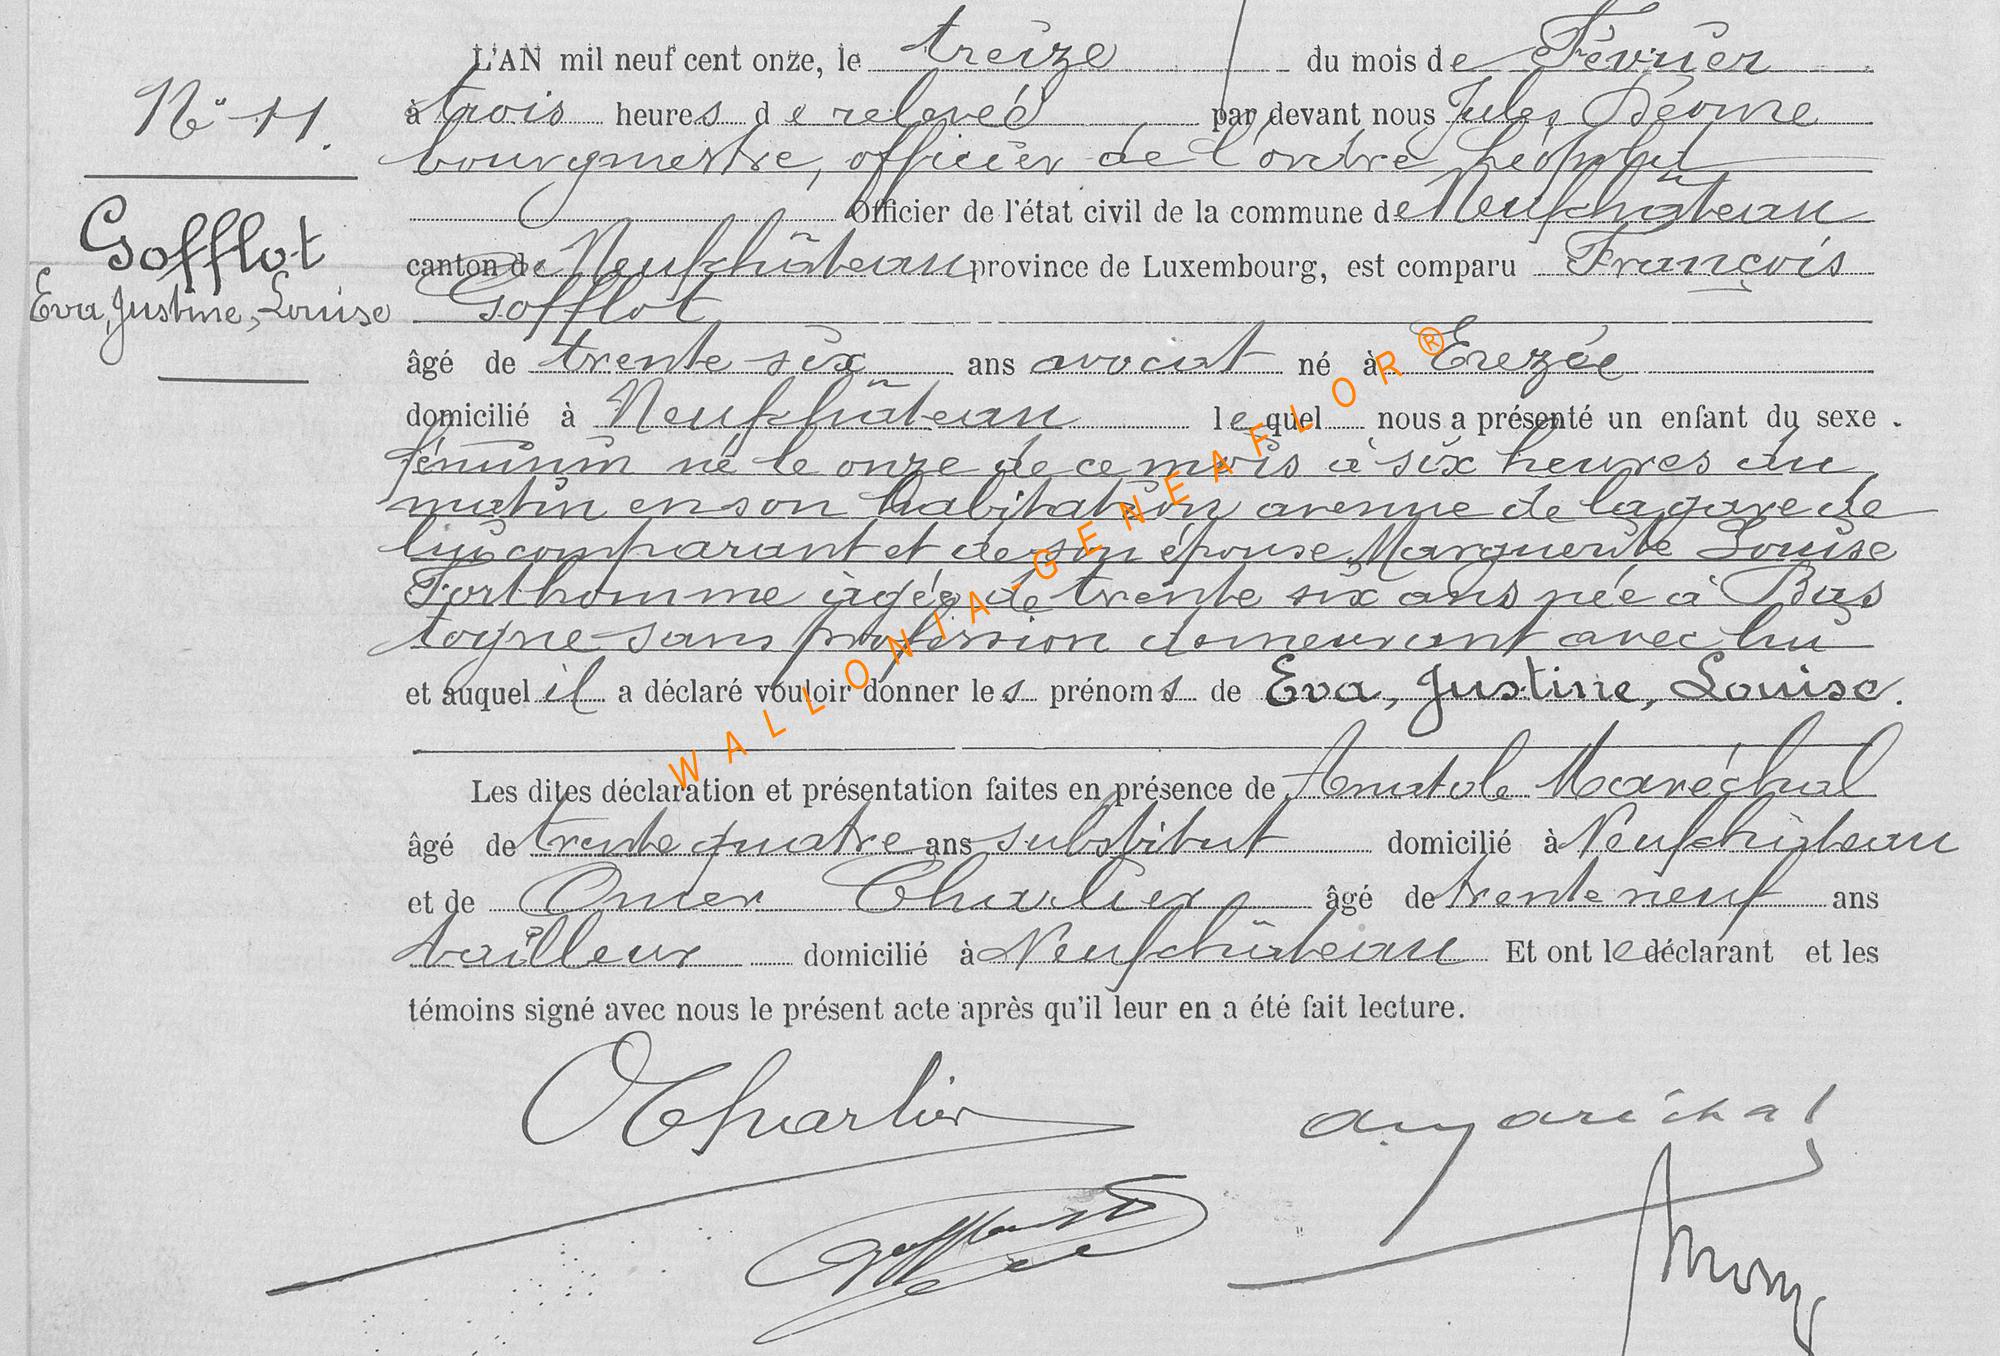 L'AN mil neuf cent onze, le treize du mois de Février
N° 11.
à trois heures de relevée par devant nous Jules
bourgmestre, officier de l'ordre Léopold
Officier de l'état civil de la commune de Neufchâteau
Gofflot
canton de Neufchâteau province de Luxembourg, est comparu François
Eva, Justine, Louise
Gofflot
âgé de trente six ans avocat né à Erezée
domicilié à Neufchâteau lequel nous a présenté un enfant du sexe
féminin né le onze de ce mois à six heures du
matin en son habitation avenue de la gare de
lui comparant et de son épouse Marguerite Louise
Forthomme âgée de trente six ans née à Bas
togne sans profession demeurant avec lui
et auquel il a déclaré vouloir donner les prénoms de Eva, Justine, Louise.
Les dites déclaration et présentation faites en présence de Anatole Maréchal
âgé de trente quatre ans substitut domicilié à Neufchâteau
et de Omer Charlier âgé de trente neuf ans
tailleur domicilié à Neufchâteau Et ont le déclarant et les
témoins signé avec nous le présent acte après qu'il leur en a été fait lecture.
OCharlier
amaréchal
WALLONIA-GENEAFLOR®